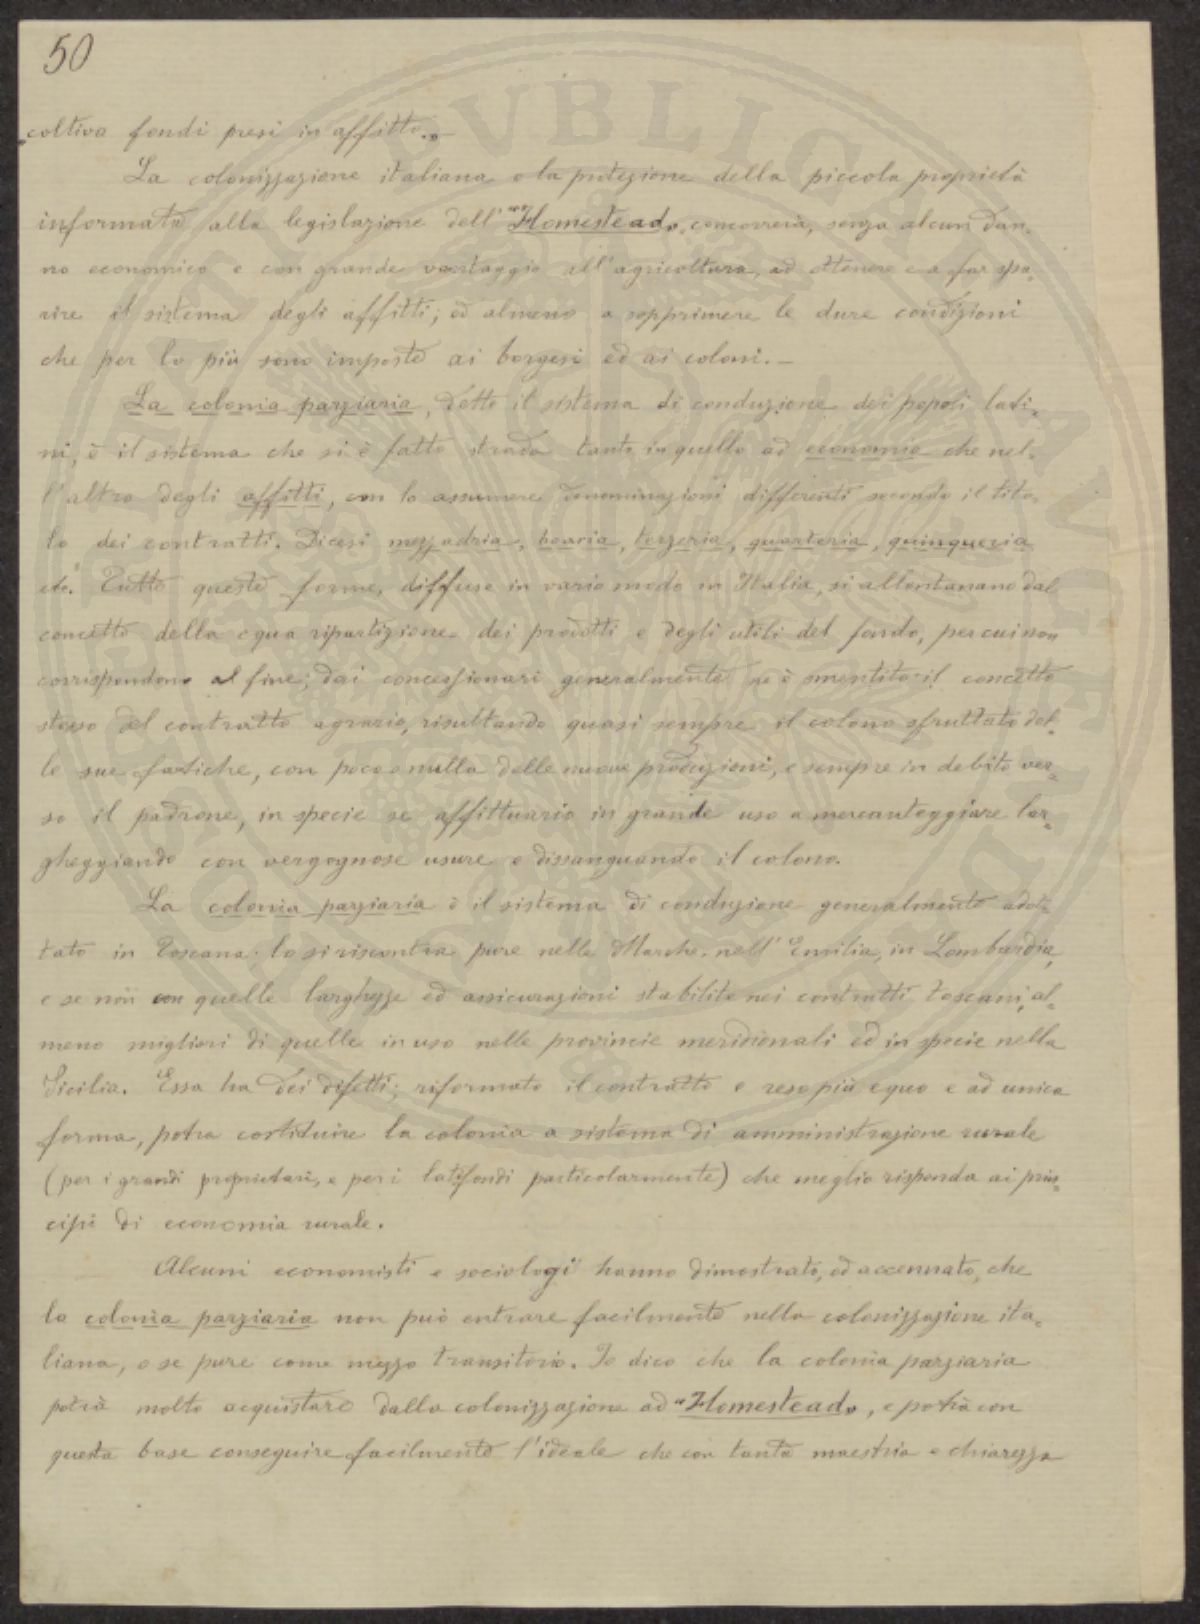 50
coltiva fondi presi in affitto._
La colonizzazione italiana e la protezione della piccola proprietà
informata alla legislazione dell'"Homestead" concorrerà, senza alcun dan-
no economico e con grande vantaggio all'agricoltura, ad ottenere e a far spa-
rire il sistema degli affitti; od almeno a sopprimere le dure condizioni
che per lo più sono imposte ai borgesi ed ai coloni._
La colonia parziaria, detto il sistema di conduzione dei popoli lati-
ni, è il sistema che si è fatto strada tanto in quello ad economia che nel-
l'altro degli affitti, con lo assumere denominazioni differenti secondo il tito-
lo dei contratti. Dicesi mezzadria, boaria, terzeria, quarteria, quinqueria
etc. Tutte queste forme, diffuse in vario modo in Italia, si allontanano dal
concetto della equa ripartizione dei prodotti e degli utili del fondo, per cui non
corrispondono al fine; dai concessionari generalmente ne è smentito il concetto
stesso del contratto agrario, risultando quasi sempre il colono sfruttato del-
le sue fatiche, con poco o nulla delle nuove produzioni, e sempre in debito ver-
so il padrone, in specie se affittuario in grande uso a mercanteggiare lar-
gheggiando con vergognose usure e dissanguando il colono.
La colonia parziaria è il sistema di conduzione generalmente adot-
tato in Toscana. lo si riscontra pure nelle Marche, nell'Emilia, in Lombardia,
e se non con quelle larghezze ed assicurazioni stabilite nei contratti toscani, al-
meno migliori di quelle in uso nelle provincie meridionali ed in specie nella
Sicilia. Essa ha dei difetti; riformato il contratto e reso più equo e ad unica
forma, potrà costituire la colonia a sistema di amministrazione rurale
(per i grandi proprietari, e per i latifondi particolarmente) che meglio risponda ai prin-
cipii di economia rurale.
Alcuni economisti e sociologi hanno dimostrato, ed accennato, che
la colonia parziaria non può entrare facilmente nella colonizzazione ita-
liana, o se pure come mezzo transitorio. Io dico che la colonia parziaria
potrà molto acquistare dalla colonizzazione ad "Homestead", e potrà con
questa base conseguire facilmente l'ideale che con tanta maestria e chiarezza